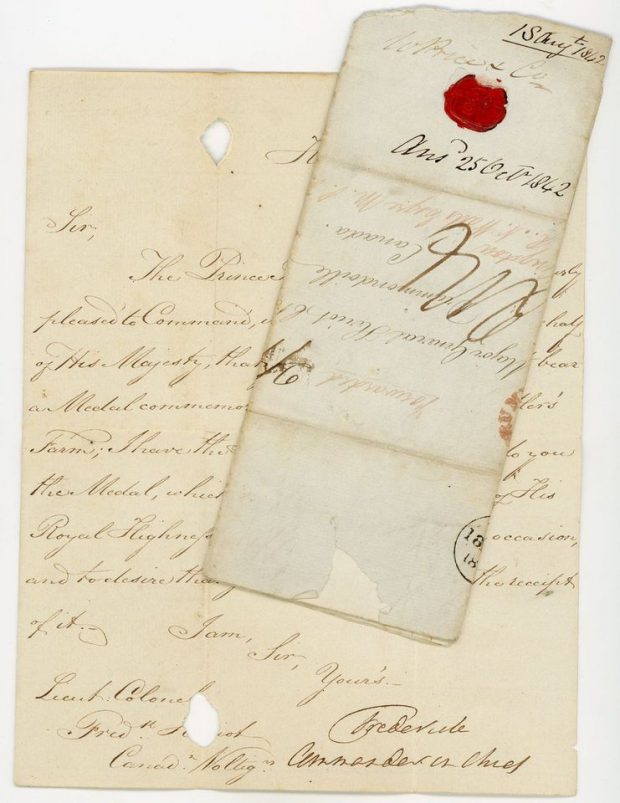 Sir,
The Prince
pleased to Command,
half
of His Majesty, tha
bear
a Medal commemo
ler's
Farm; I have the
to you
the Medal, which
of His
Royal Highness
occasion,
and to desire tha
the receipt
of it.—
I am,
Sir,
Your's—
Lieut. Colonel
Fredk. Heriot
Canadn. Voltigrs
Frederick
Commander in Chief
18 Augt 1842
Price & Co
Ansd 25 Oct 1842
Major General Heriot
Drummondville
Canada
forwarded
18